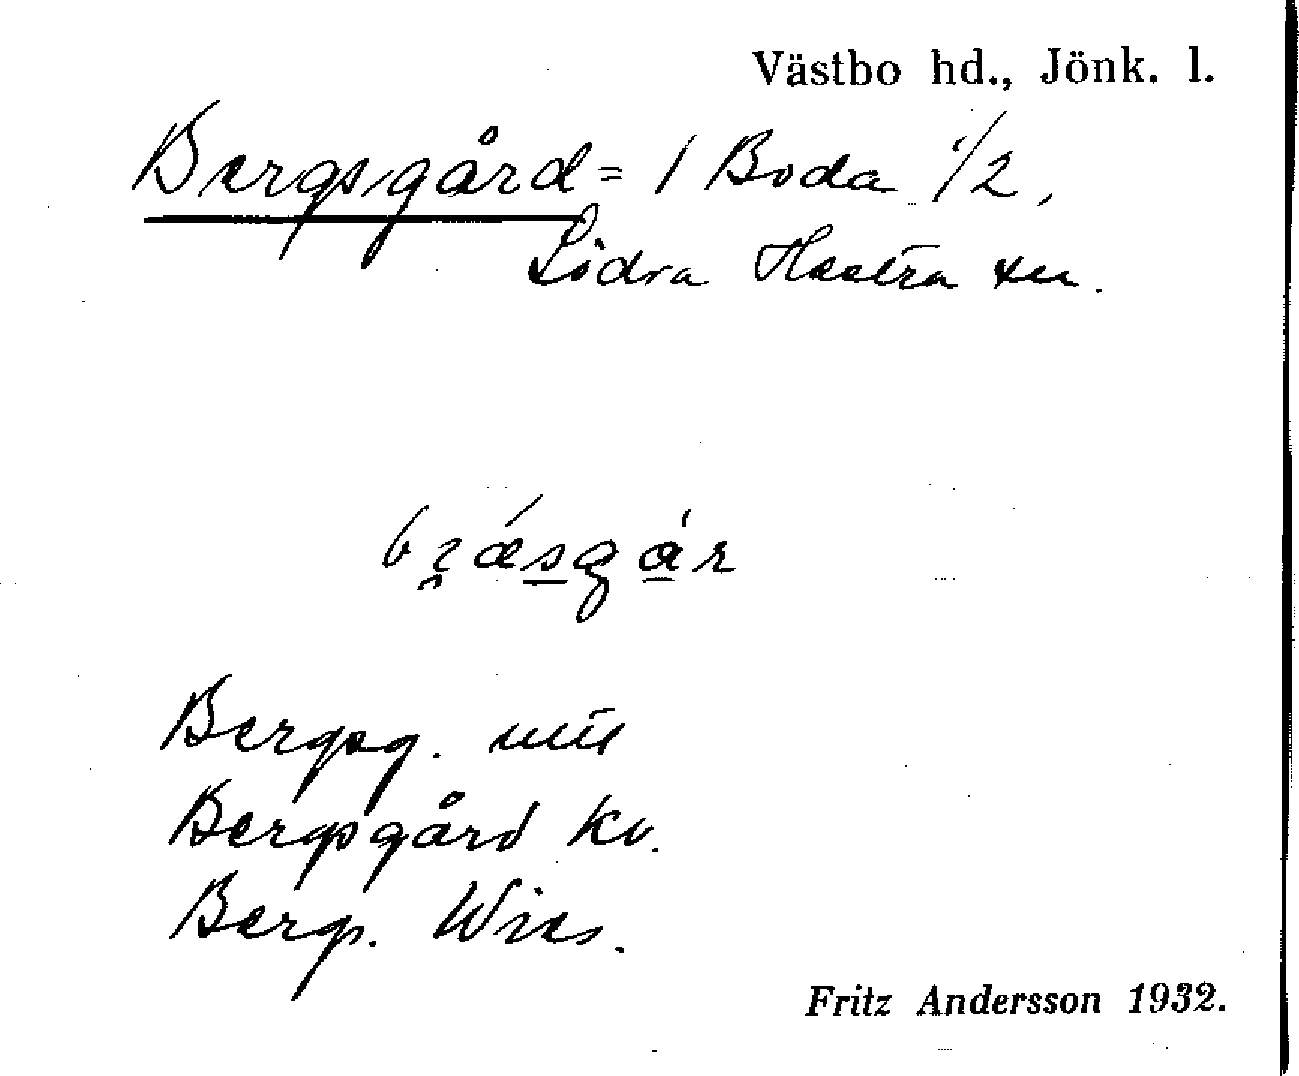 Västbo hd., Jönk. l.
Bergsgård = 1 Boda 1/2,
Södra Hestra sn.
brǽsgár
Bergsg. mtl
Bergsgård kv.
Berg. Wies.
Fritz Andersson 1932.